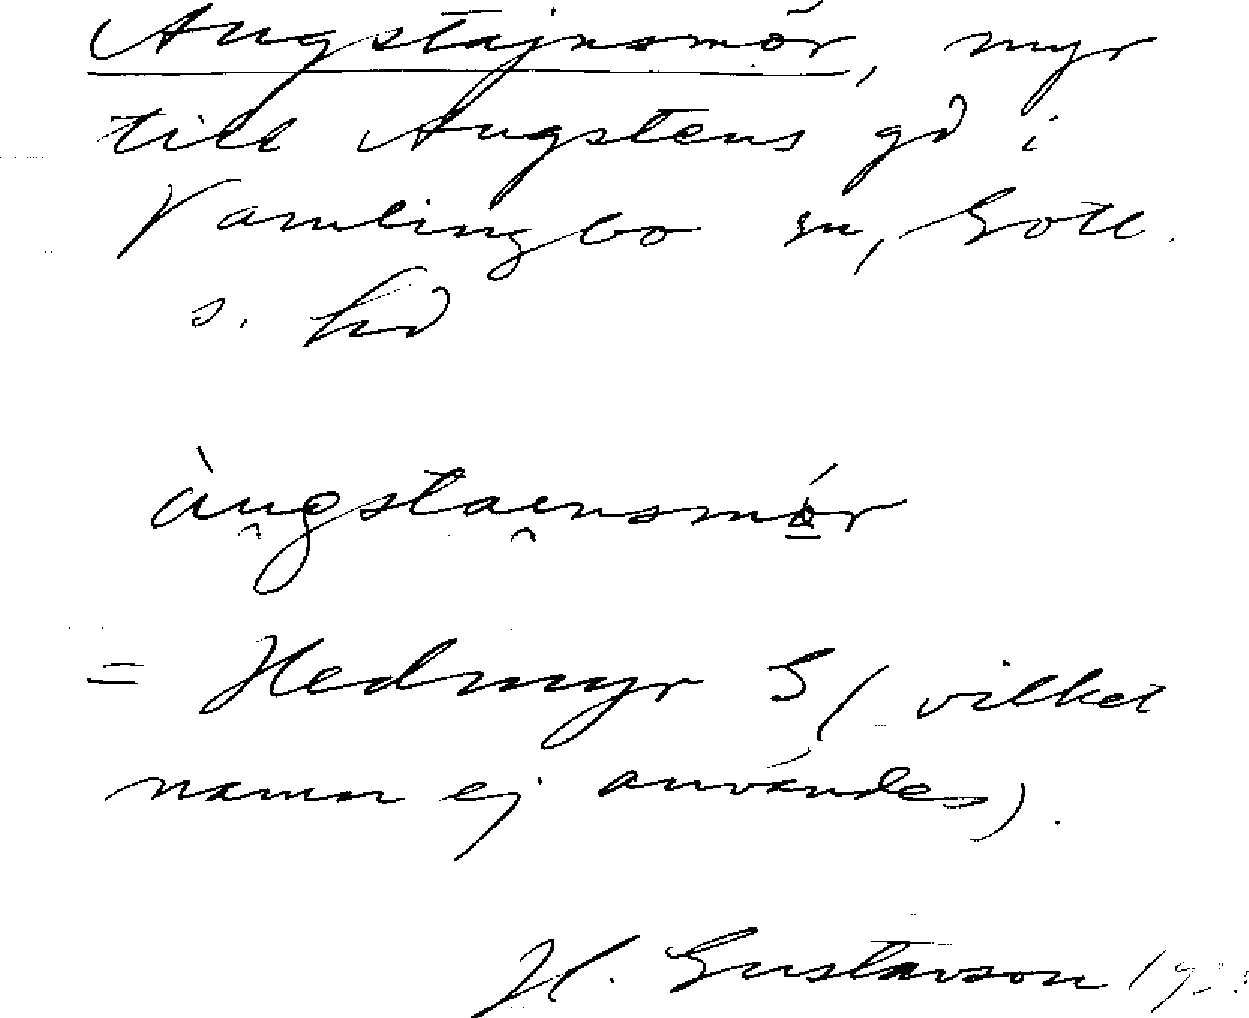 Augstajnsmör, myr
till Augstens gd i
Vamlingbo sn, Gotl.
s. hd
àugstaensmó̲r
= Hedmyr S/ (vilket
namn ej användes).
H. Gustavson